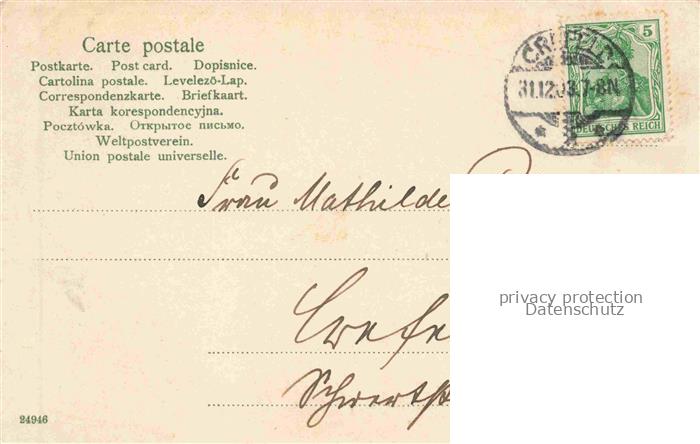 Carte postale
Postkarte. Post card. Dopisnice.
Cartolina postale. Levelező-Lap.
Correspondenzkarte. Briefkaart.
Karta korespondencyjna.
Pocztówka. Открытое письмо.
Weltpostverein.
Union postale universelle.
5
31.12.03.7-8N
DEUTSCHES REICH
Frau Mathilde
privacy protection
Datenschutz
Crefe
24946